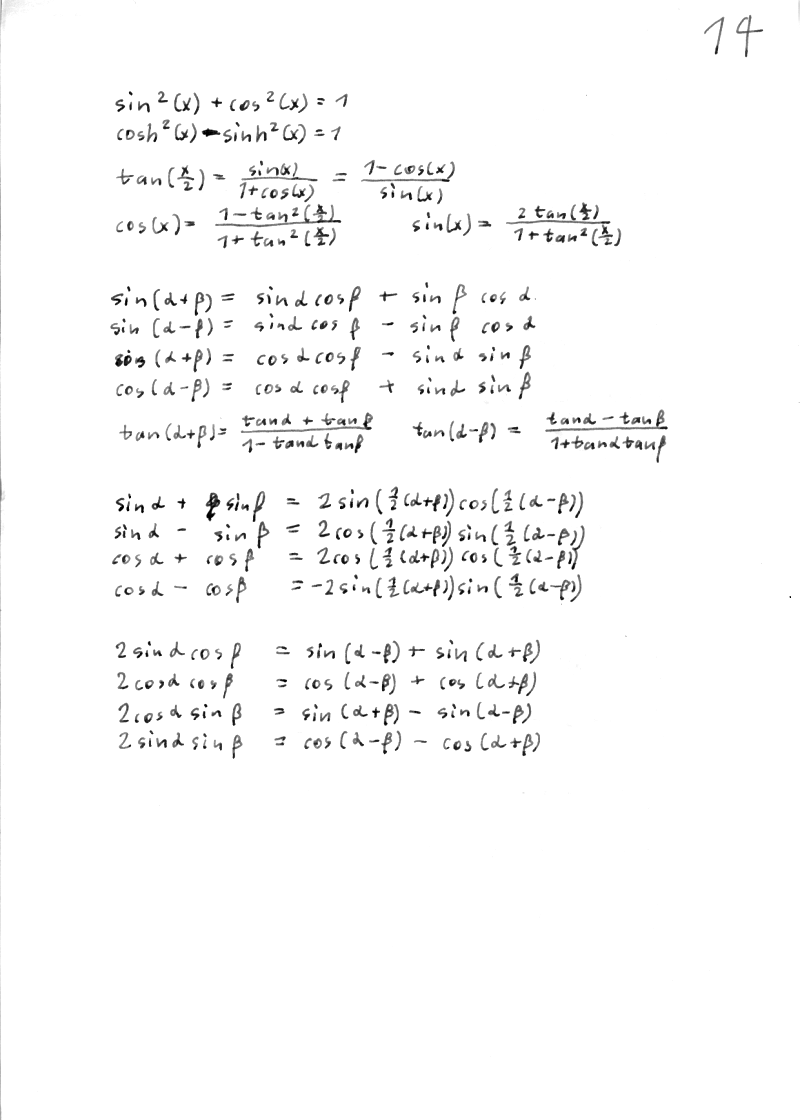 14
sin²(x) + cos²(x) = 1
cosh²(x) - sinh²(x) = 1
tan(x/2) = sin(x)/(1+cos(x)) = (1-cos(x))/sin(x)
cos(x) = (1-tan²(x/2))/(1+tan²(x/2))   sin(x) = (2 tan(x/2))/(1+tan²(x/2))
sin(α+β) = sin α cos β + sin β cos α
sin(α-β) = sin α cos β - sin β cos α
cos(α+β) = cos α cos β - sin α sin β
cos(α-β) = cos α cos β + sin α sin β
tan(α+β) = (tan α + tan β)/(1 - tan α tan β)   tan(α-β) = (tan α - tan β)/(1 + tan α tan β)
sin α + sin β = 2 sin(½(α+β)) cos(½(α-β))
sin α - sin β = 2 cos(½(α+β)) sin(½(α-β))
cos α + cos β = 2 cos(½(α+β)) cos(½(α-β))
cos α - cos β = -2 sin(½(α+β)) sin(½(α-β))
2 sin α cos β = sin(α-β) + sin(α+β)
2 cos α cos β = cos(α-β) + cos(α+β)
2 cos α sin β = sin(α+β) - sin(α-β)
2 sin α sin β = cos(α-β) - cos(α+β)